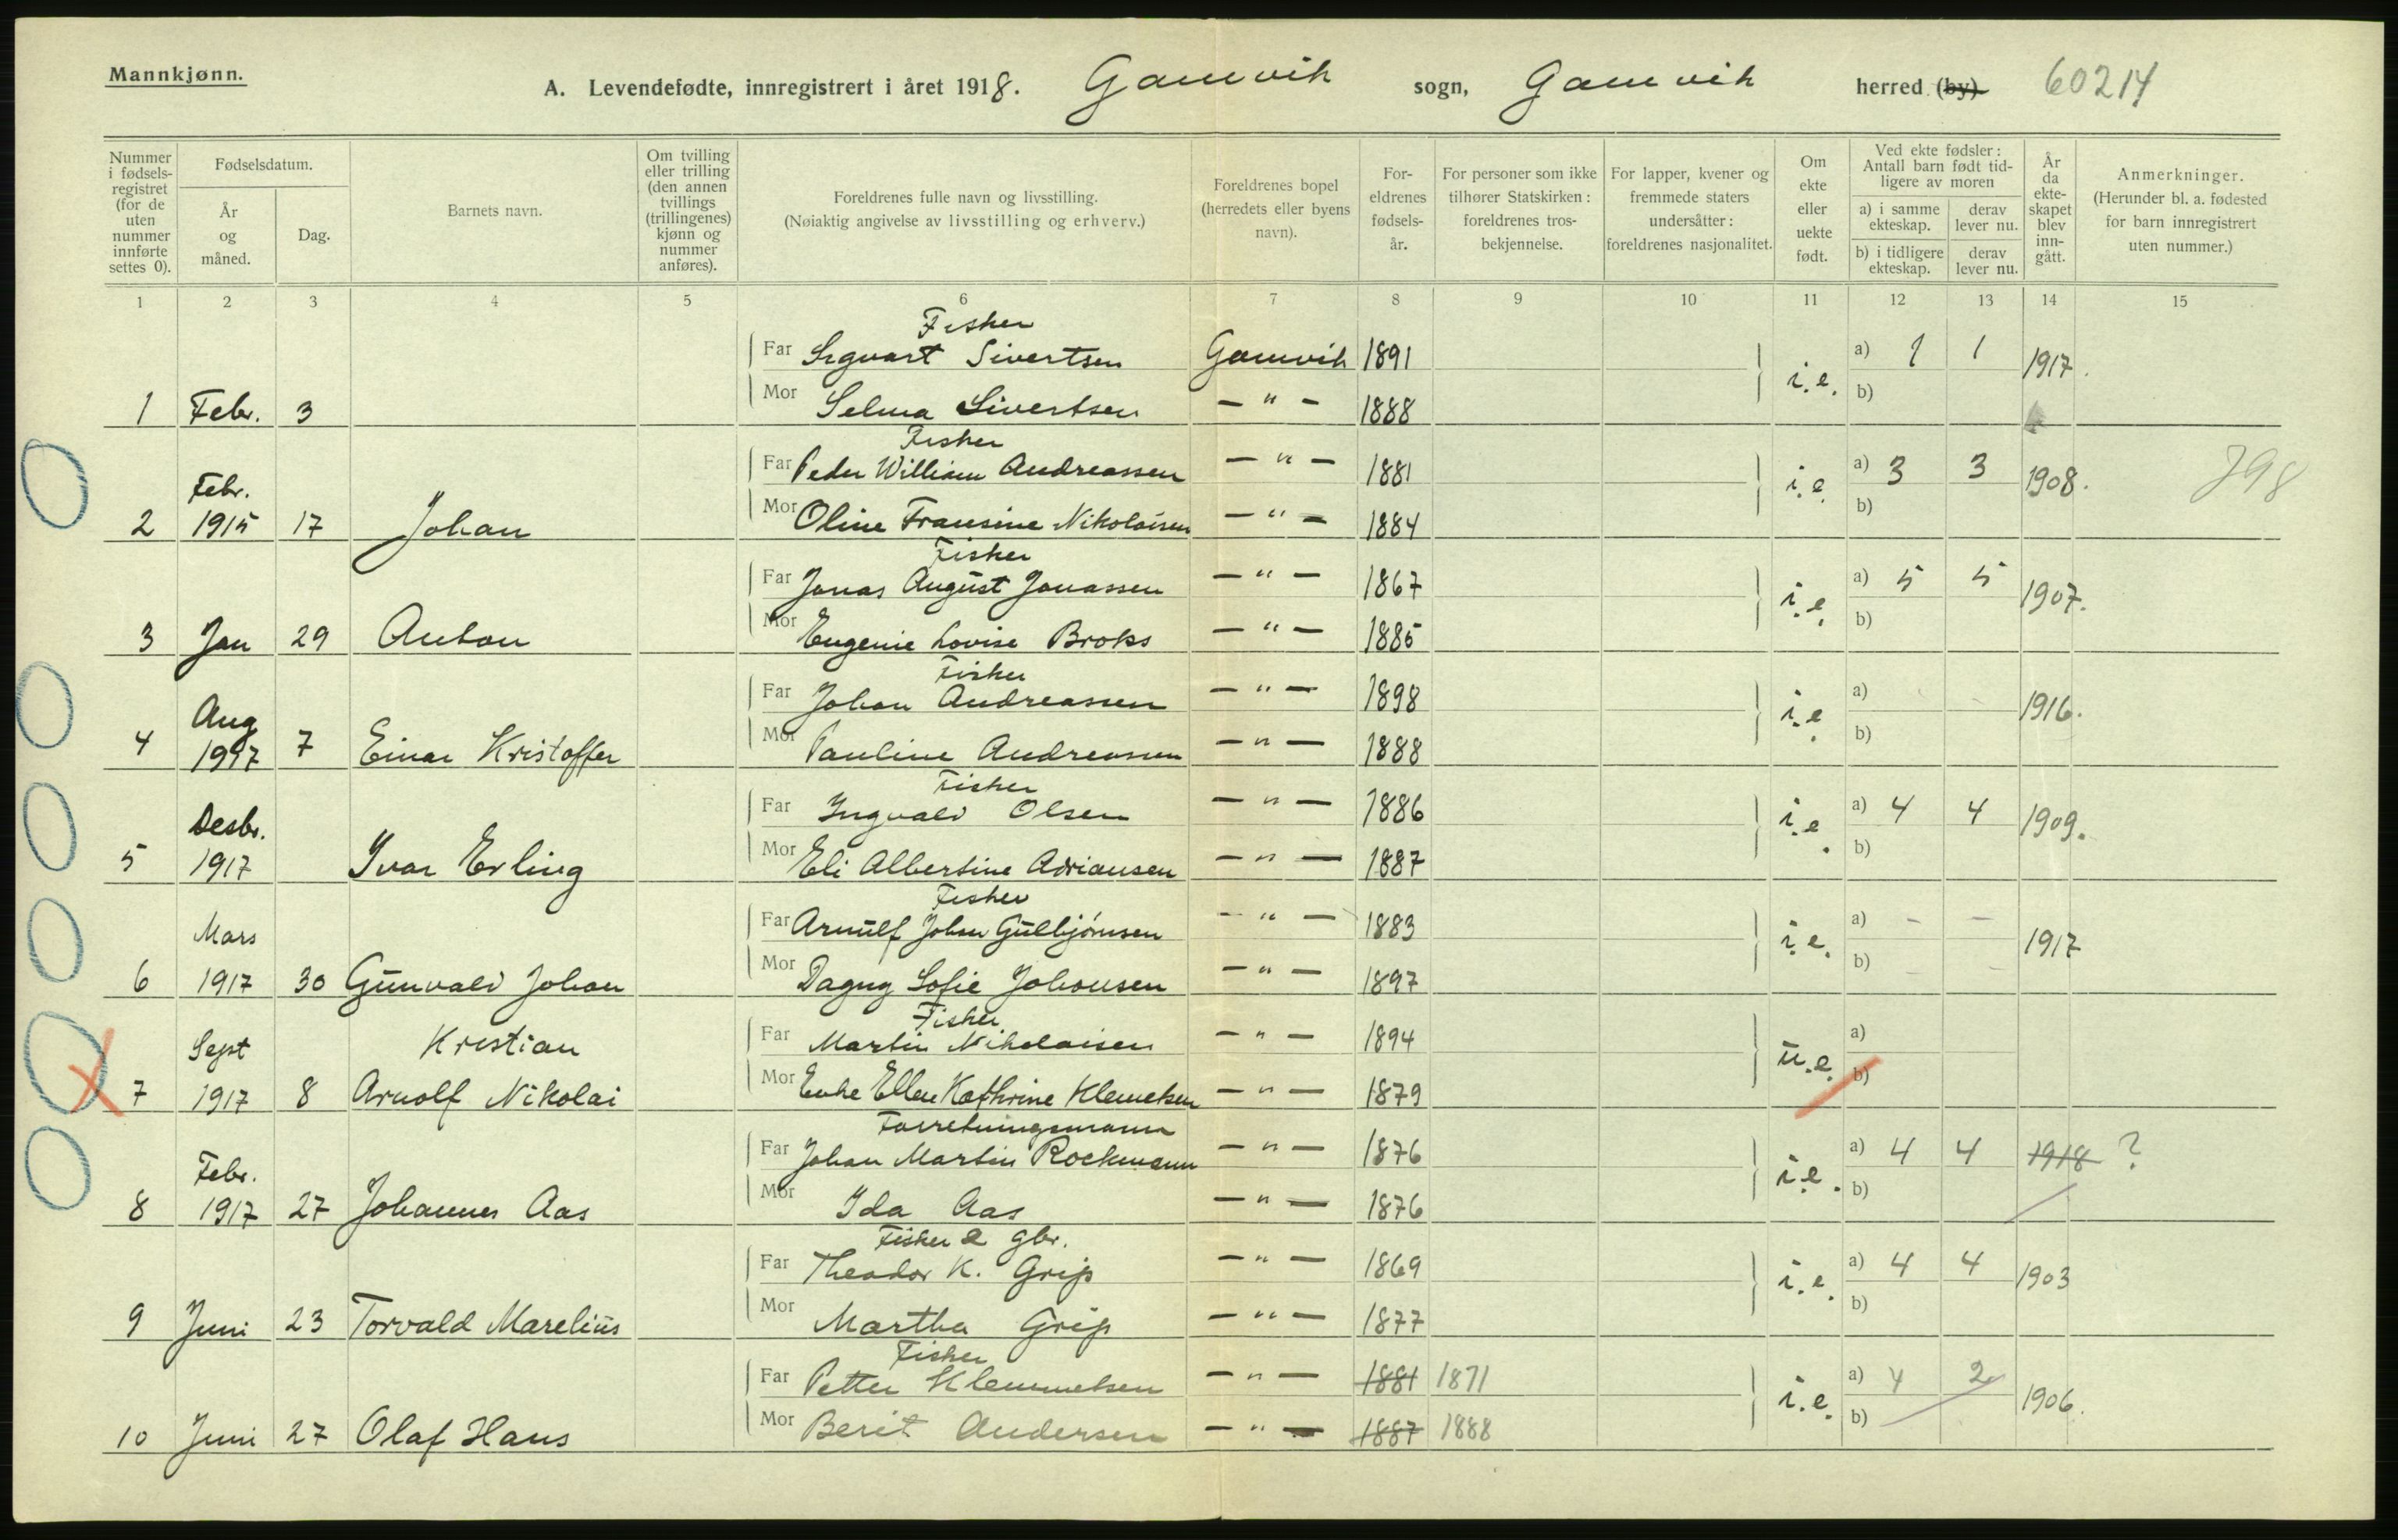 Mannkjønn.
A. Levendefødte, innregistrert i året 1918. Gamvik sogn, Gamvik herred (by) 60214
Nummer i fødsels-registret (for de uten nummer innførte settes 0).
Fødselsdatum.
År og måned.
Dag.
Barnets navn.
Om tvilling eller trilling (den annen tvillings (trillingenes) kjønn og nummer anføres).
Foreldrenes fulle navn og livsstilling.
(Nøiaktig angivelse av livsstilling og erhverv.)
Foreldrenes bopel (herredets eller byens navn).
For-eldrenes fødsels-år.
For personer som ikke tilhører Statskirken: foreldrenes tros-bekjennelse.
For lapper, kvener og fremmede staters undersåtter: foreldrenes nasjonalitet.
Om ekte eller uekte født.
Ved ekte fødsler: Antall barn født tid-ligere av moren
a) i samme ekteskap.
derav lever nu.
b) i tidligere ekteskap.
derav lever nu.
År da ekte-skapet blev inn-gått.
Anmerkninger.
(Herunder bl. a. fødested for barn innregistrert uten nummer.)
1 2 3 4 5 6 7 8 9 10 11 12 13 14 15
Fisker
Far Sigvart Sivertsen Gamvik 1891 a) 1 1 1917.
1 Febr. 3 Mor Selma Sivertsen — " — 1888 i.e. b)
Fisker
Far Peder William Andreassen — " — 1881 a) 3 3 1908. 798
Febr.
2 1915 17 Johan Mor Oline Fransine Nikolaisen — " — 1884 i.e. b)
Fisker
Far Jonas August Jonassen — " — 1867 a) 5 5 1907.
3 Jan 29 Anton Mor Eugenie Lovise Broks — " — 1885 i.e. b)
Fisker
Far Johan Andreassen — " — 1898 a) 1916.
Aug
4 1917 7 Einar Kristoffer Mor Pauline Andreassen — " — 1888 i.e. b)
Fisker
Far Ingvald Olsen — " — 1886 a) 4 4 1909.
Desbr.
5 1917 Ivar Erling Mor Eli Albertine Adriansen — " — 1887 i.e. b)
Fisker
Far Arnulf Johan Gulbjørnsen — " — 1883 a) - - 1917
Mars
6 1917 30 Gunvald Johan Mor Dagny Sofie Johansen — " — 1897 i.e. b) - -
Fisker
Far Martin Nikolaisen — " — 1894 a)
Sept Kristian
7 1917 8 Arnolf Nikolai Mor Enke Ellen Kathrine Klemetsen — " — 1879 u.e. b)
Forretningsmann
Far Johan Martin Rockmann — " — 1876 a) 4 4 1918 ?
Febr.
8 1917 27 Johannes Aas Mor Ida Aas — " — 1876 i.e. b)
Fisker & gbr.
Far Theodor K. Grip — " — 1869 a) 4 4 1903
9 Juni 23 Torvald Marelius Mor Martha Grip — " — 1877 i.e. b)
Fisker
Far Petter Klemmetsen — " — 1881 1871 a) 4 2 1906.
10 Juni 27 Olaf Hans Mor Berit Andersen — " — 1887 1888 i.e. b)